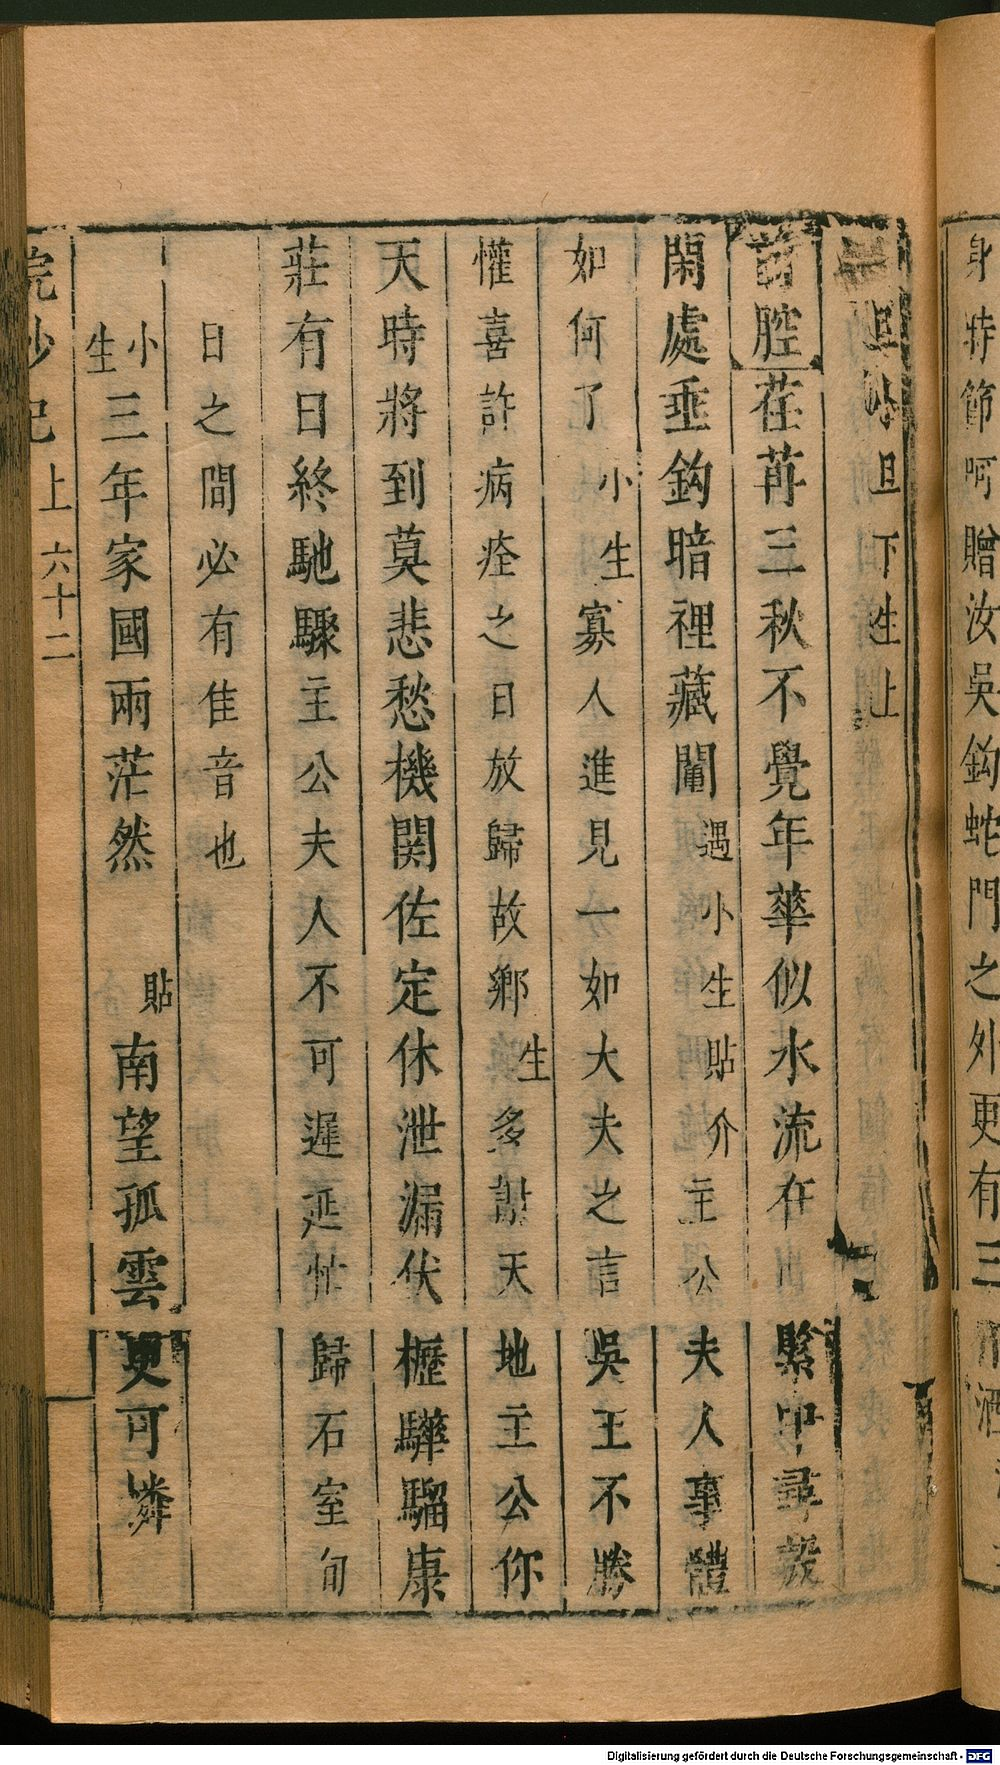 身時節呵贈汝吳鈎蛇門之外更有三
旦外旦下生上
前腔荏苒三秋不覺年華似水流在鬧中尋鬆
閑處垂鈎暗裡藏鬮遇小生貼介主公夫人事體
如何了小生寡人進見一如大夫之言吳王不勝
懽喜許病痊之日放歸故鄉生多謝天地主公你
天時將到莫悲愁機関佐定休泄漏伏櫪驊騮康
莊有日終馳驟主公夫人不可遲延忙歸石室旬
日之間必有佳音也
小生三年家國兩茫然 貼南望孤雲更可憐
浣紗記 上 六十二
Digitalisierung gefördert durch die Deutsche Forschungsgemeinschaft - DFG